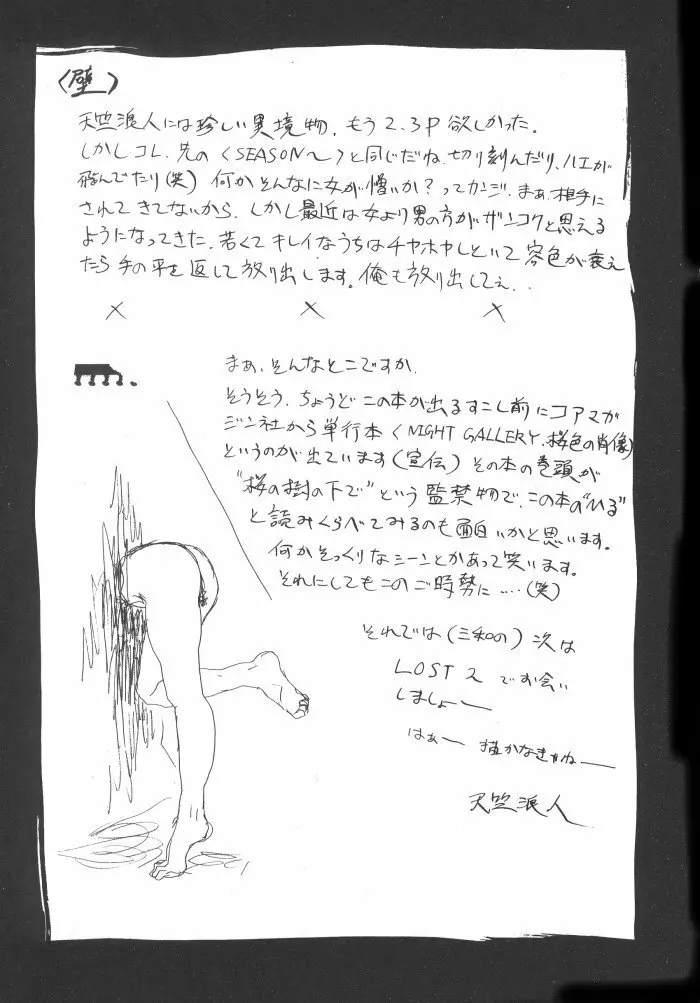 〈壁〉
天竺浪人には珍しい異境物、もう2、3P欲しかった。
しかしコレ、先の〈SEASON〜〉と同じだね、切り刻んだり、ハエが
飛んでたり(笑) 何かそんなに女が憎いか？ってカンジ、まぁ相手に
されてきてないから、しかし最近は女より男の方がザンコクと思える
ようになってきた、若くてキレイなうちはチヤホヤしといて容色が衰え
たら手の平を返して放り出します。俺も放り出してぇ..
× × ×
まぁ、そんなとこですか、
そうそう、ちょうどこの本が出るすこし前にコアマガ
ジン社から単行本〈NIGHT GALLERY、桜色の肖像〉
というのが出ています(宣伝)その本の巻頭が
"桜の樹の下で"という監禁物で、この本の"いる"
と読みくらべてみるのも面白いかと思います。
何かそっくりなシーンとかあって笑います。
それにしてもこのご時勢に‥‥(笑)
それでは(三和の)次は
LOST 2 でお会い
しましょー
はぁー 描かなきゃねー
天竺浪人